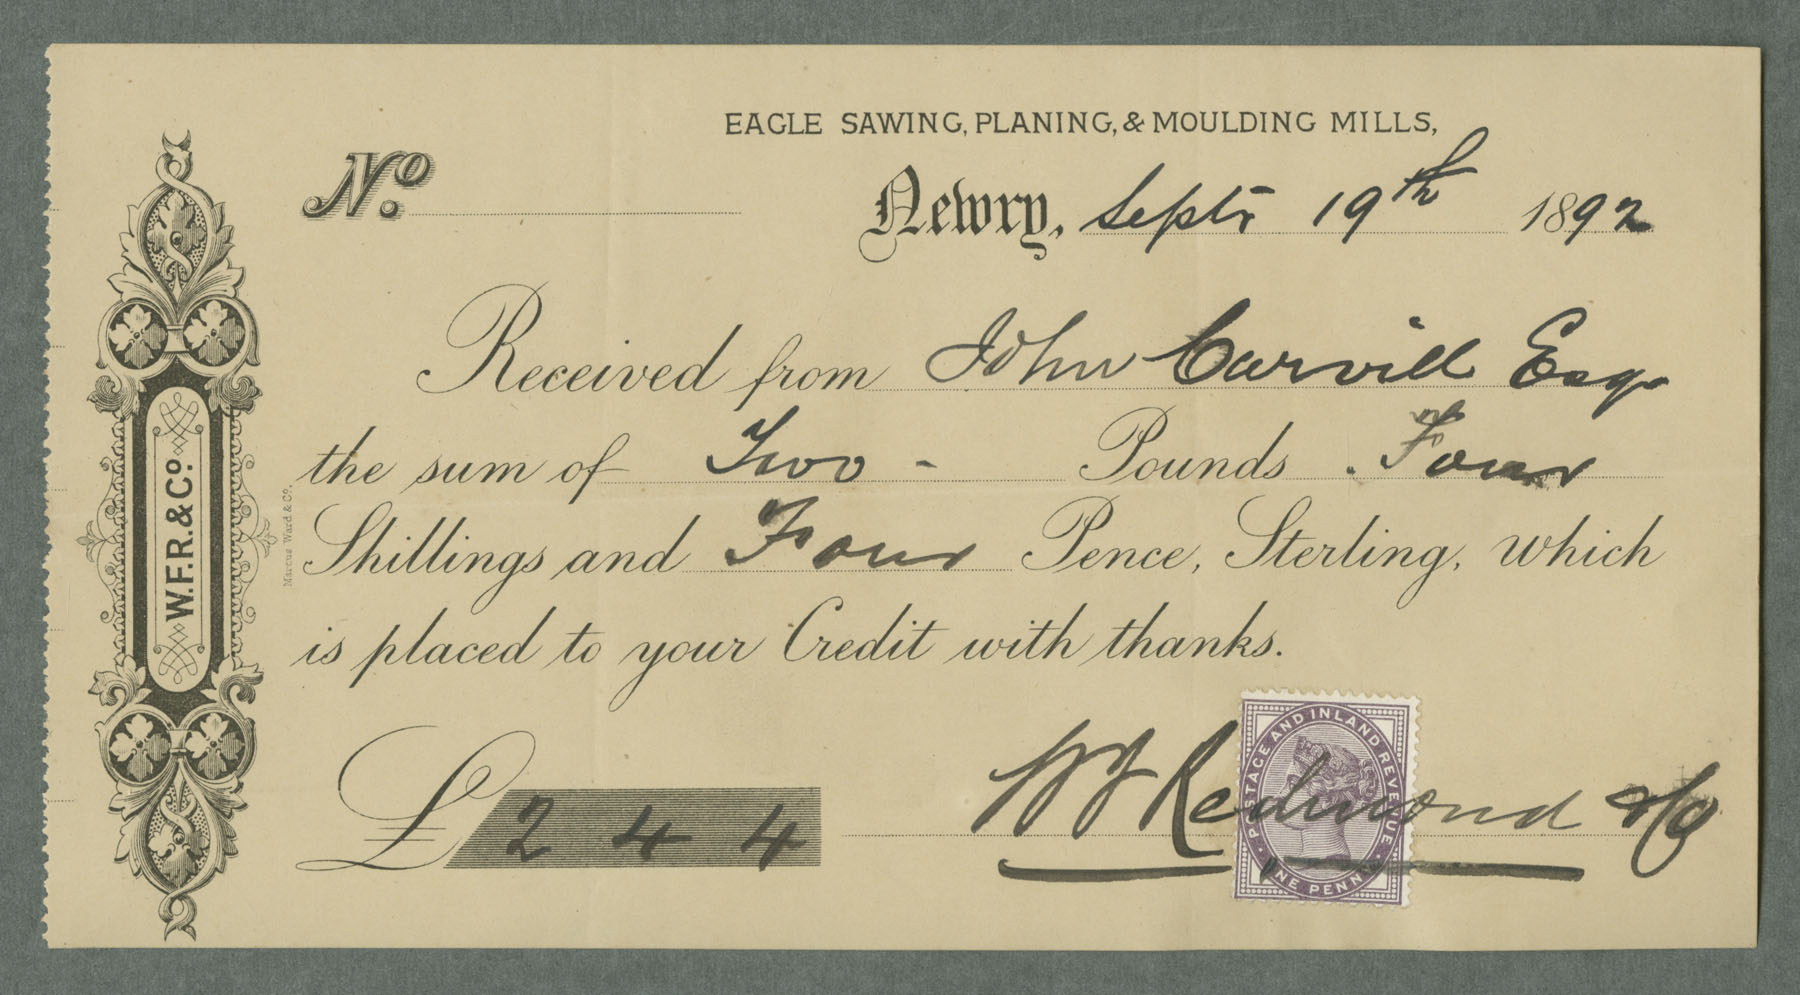 EAGLE SAWING, PLANING, & MOULDING MILLS,
No.
Newry, Septr 19th 1892
Received from John Carvill Esqr
the sum of Two - Pounds Four
Shillings and Four Pence, Sterling, which
is placed to your Credit with thanks.
£ 2 4 4
WF Redmond & Co
POSTAGE AND INLAND REVENUE
ONE PENNY
W.F.R. & Co.
Marcus Ward & Co.